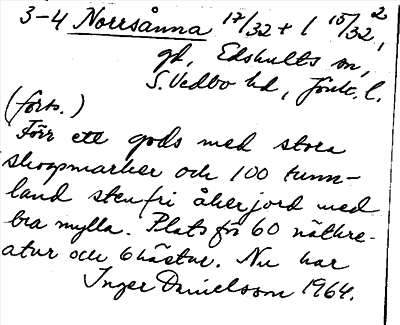 3-4 Norrsånna 17/32 + 1 15/32 2,
gd, Edshults sn,
S. Vedbo hd, Jönk. l.
(forts.)
Förr ett gods med stora
skogsmarker och 100 tunn-
land stenfri åkerjord med
bra mylla. Plats för 60 nötkre-
atur och 6 hästar. Nu har
Inger Danielsson 1964.